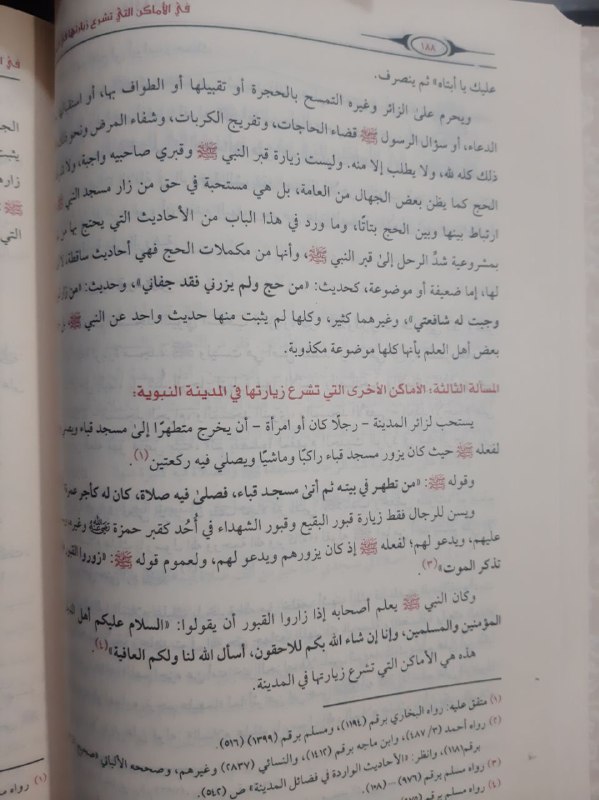 في الأماكن التي تشرع زيارتها
١٨٨
عليك يا أبتاه» ثم ينصرف.
ويحرم على الزائر وغيره التمسح بالحجرة أو تقبيلها أو الطواف بها، أو
الدعاء، أو سؤال الرسول ﷺ قضاء الحاجات، وتفريج الكربات، وشفاء المرض ونحو
ذلك كله لله، ولا يطلب إلا منه. وليست زيارة قبر النبي ﷺ وقبري صاحبيه واجبة، ولا
الحج كما يظن بعض الجهال من العامة، بل هي مستحبة في حق من زار مسجد النبي
ارتباط بينها وبين الحج بتاتًا، وما ورد في هذا الباب من الأحاديث التي يحتج بها من
بمشروعية شدِّ الرحل إلى قبر النبي ﷺ، وأنها من مكملات الحج فهي أحاديث ساقطة، لا
لها، إما ضعيفة أو موضوعة، كحديث: «من حج ولم يزرني فقد جفاني»، وحديث: «من
وجبت له شفاعتي»، وغيرهما كثير، وكلها لم يثبت منها حديث واحد عن النبي ﷺ،
بعض أهل العلم بأنها كلها موضوعة مكذوبة.
المسألة الثالثة: الأماكن الأخرى التي تشرع زيارتها في المدينة النبوية:
يستحب لزائر المدينة - رجلًا كان أو امرأة - أن يخرج متطهرًا إلى مسجد قباء
لفعله ﷺ حيث كان يزور مسجد قباء راكبًا وماشيًا ويصلي فيه ركعتين (١).
وقوله ﷺ: «من تطهر في بيته ثم أتى مسجد قباء، فصلى فيه صلاة، كان له كأجر عمرة
ويسن للرجال فقط زيارة قبور البقيع وقبور الشهداء في أُحُد كقبر حمزة رضي الله عنه وغيره
عليهم، ويدعو لهم؛ لفعله ﷺ إذ كان يزورهم ويدعو لهم، ولعموم قوله ﷺ: «زوروا القبور
تذكر الموت» (٣).
وكان النبي ﷺ يعلم أصحابه إذا زاروا القبور أن يقولوا: «السلام عليكم أهل
المؤمنين والمسلمين، وإنا إن شاء الله بكم للاحقون، أسأل الله لنا ولكم العافية» (٤).
هذه هي الأماكن التي تشرع زيارتها في المدينة.
(١) متفق عليه: رواه البخاري برقم (١١٩٤)، ومسلم برقم (١٣٩٩) (٥١٦).
(٢) رواه أحمد (٣/ ٤٨٧)، وابن ماجه برقم (١٤١٢)، والنسائي (٢/ ٣٧) وغيرهم، وصححه الألباني
برقم ١١٨١)، وانظر: «الأحاديث الواردة في فضائل المدينة» ص (٥٤٢).
(٣) رواه مسلم برقم (٩٧٦)-(١٠٨).
(٤) رواه مسلم برقم
(١) رواه